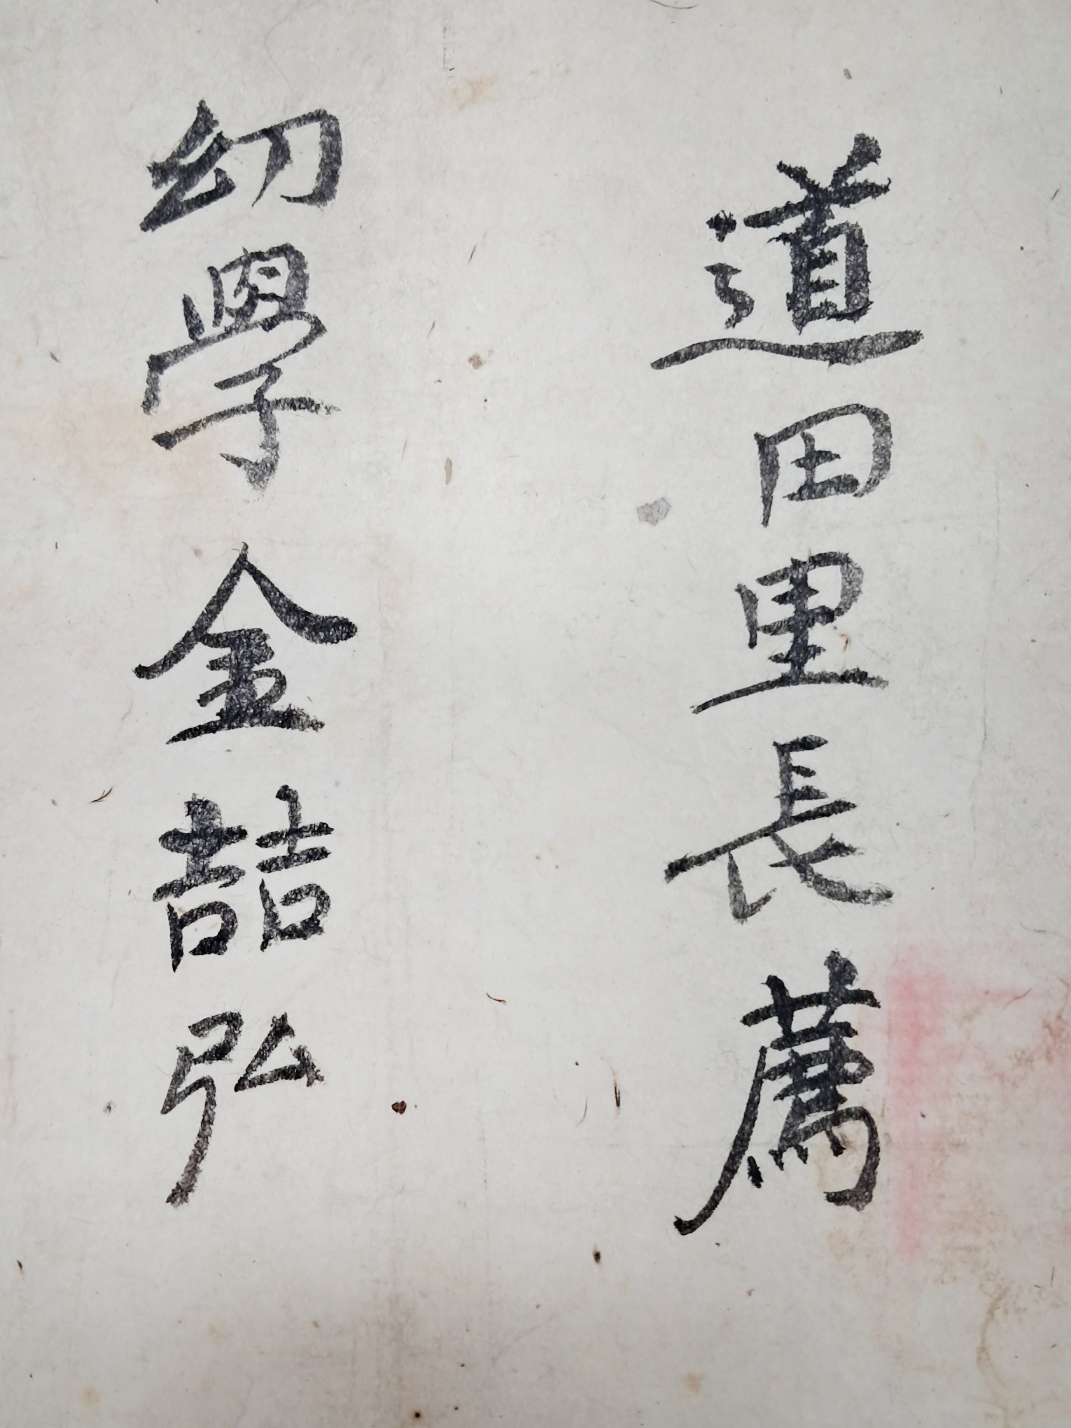 道田里長薦
幼學金喆弘